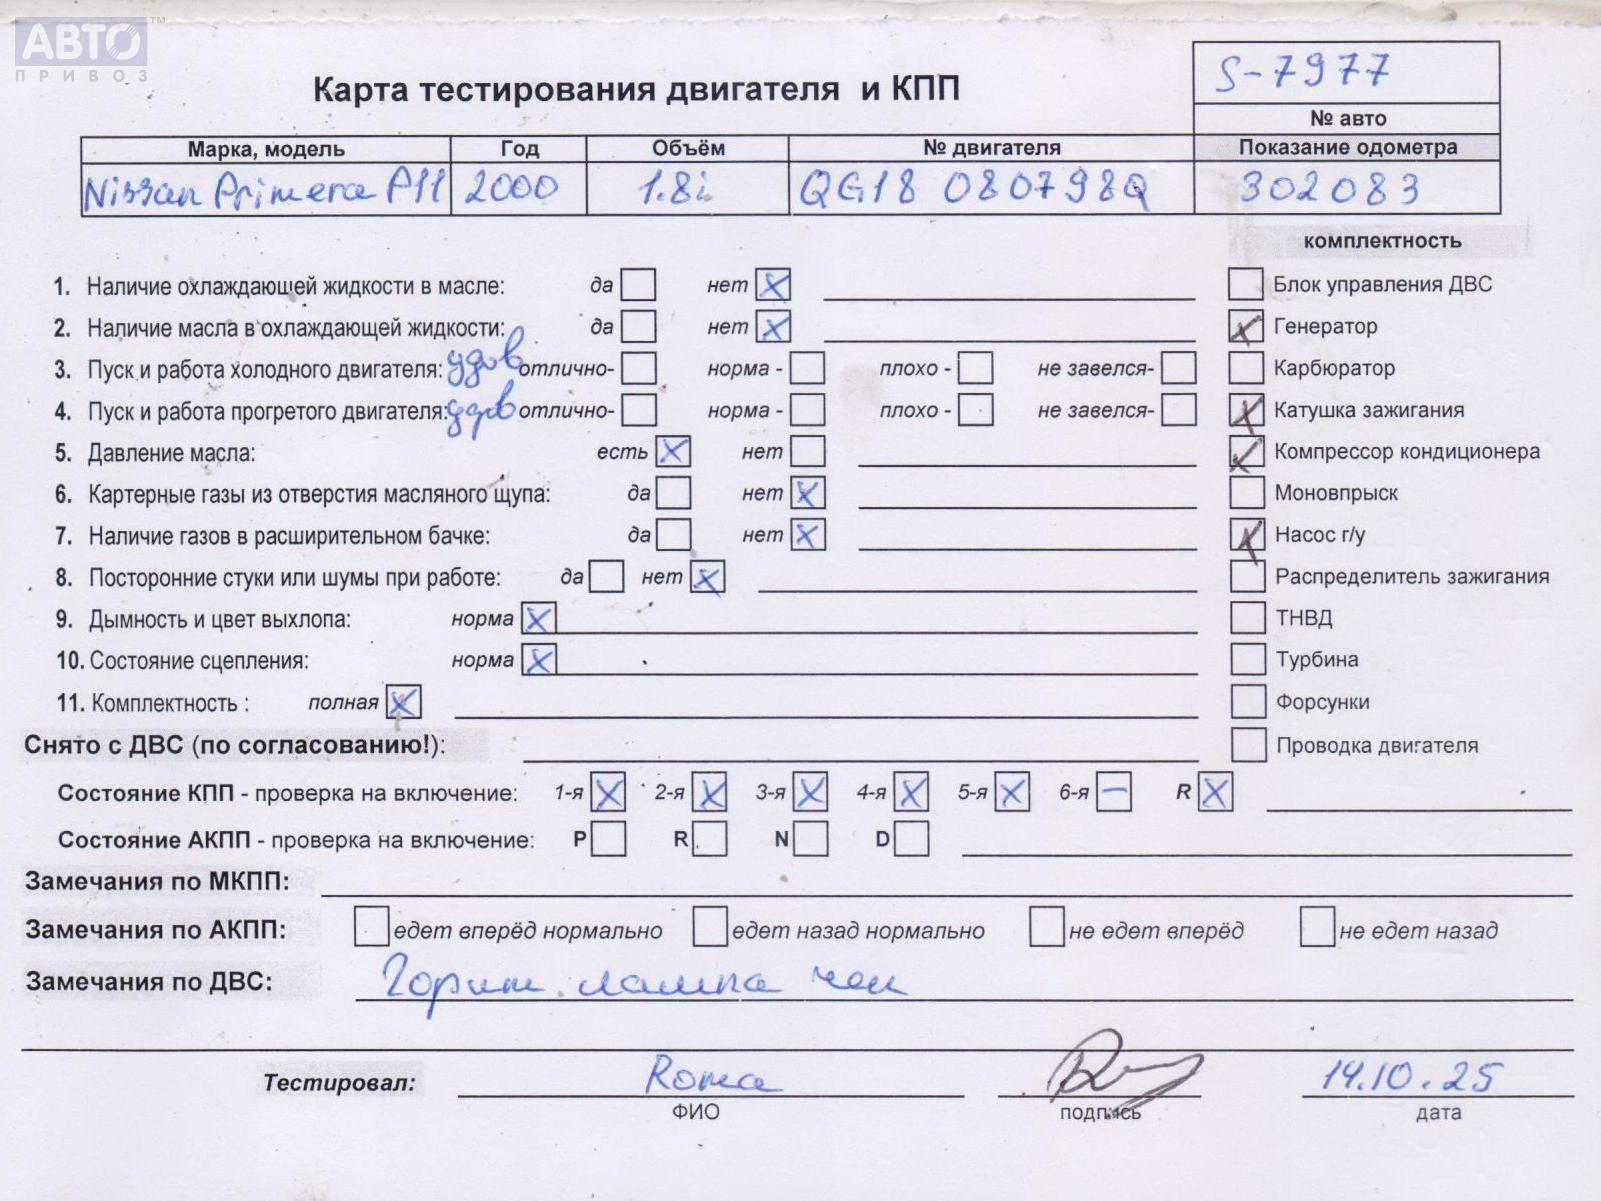 АВТО ™
ПРИВОЗ
S-7977
Карта тестирования двигателя и КПП
№ авто
Марка, модель Год Объём № двигателя Показание одометра
Nissan Primera P11 2000 1.8i QG18 080798Q 302083
комплектность
1. Наличие охлаждающей жидкости в масле: да нет X Блок управления ДВС
2. Наличие масла в охлаждающей жидкости: да нет X X Генератор
3. Пуск и работа холодного двигателя: удов отлично- норма - плохо - не завелся- Карбюратор
4. Пуск и работа прогретого двигателя: удов отлично- норма - плохо - не завелся- X Катушка зажигания
5. Давление масла: есть X нет X Компрессор кондиционера
6. Картерные газы из отверстия масляного щупа: да нет X Моновпрыск
7. Наличие газов в расширительном бачке: да нет X X Насос г/у
8. Посторонние стуки или шумы при работе: да нет X Распределитель зажигания
9. Дымность и цвет выхлопа: норма X ТНВД
10. Состояние сцепления: норма X Турбина
11. Комплектность : полная X Форсунки
Снято с ДВС (по согласованию!): Проводка двигателя
Состояние КПП - проверка на включение: 1-я X 2-я X 3-я X 4-я X 5-я X 6-я – R X
Состояние АКПП - проверка на включение: P R N D
Замечания по МКПП:
Замечания по АКПП: едет вперёд нормально едет назад нормально не едет вперёд не едет назад
Замечания по ДВС: Горит лампа чек
Тестировал: Рома 14.10.25
ФИО подпись дата